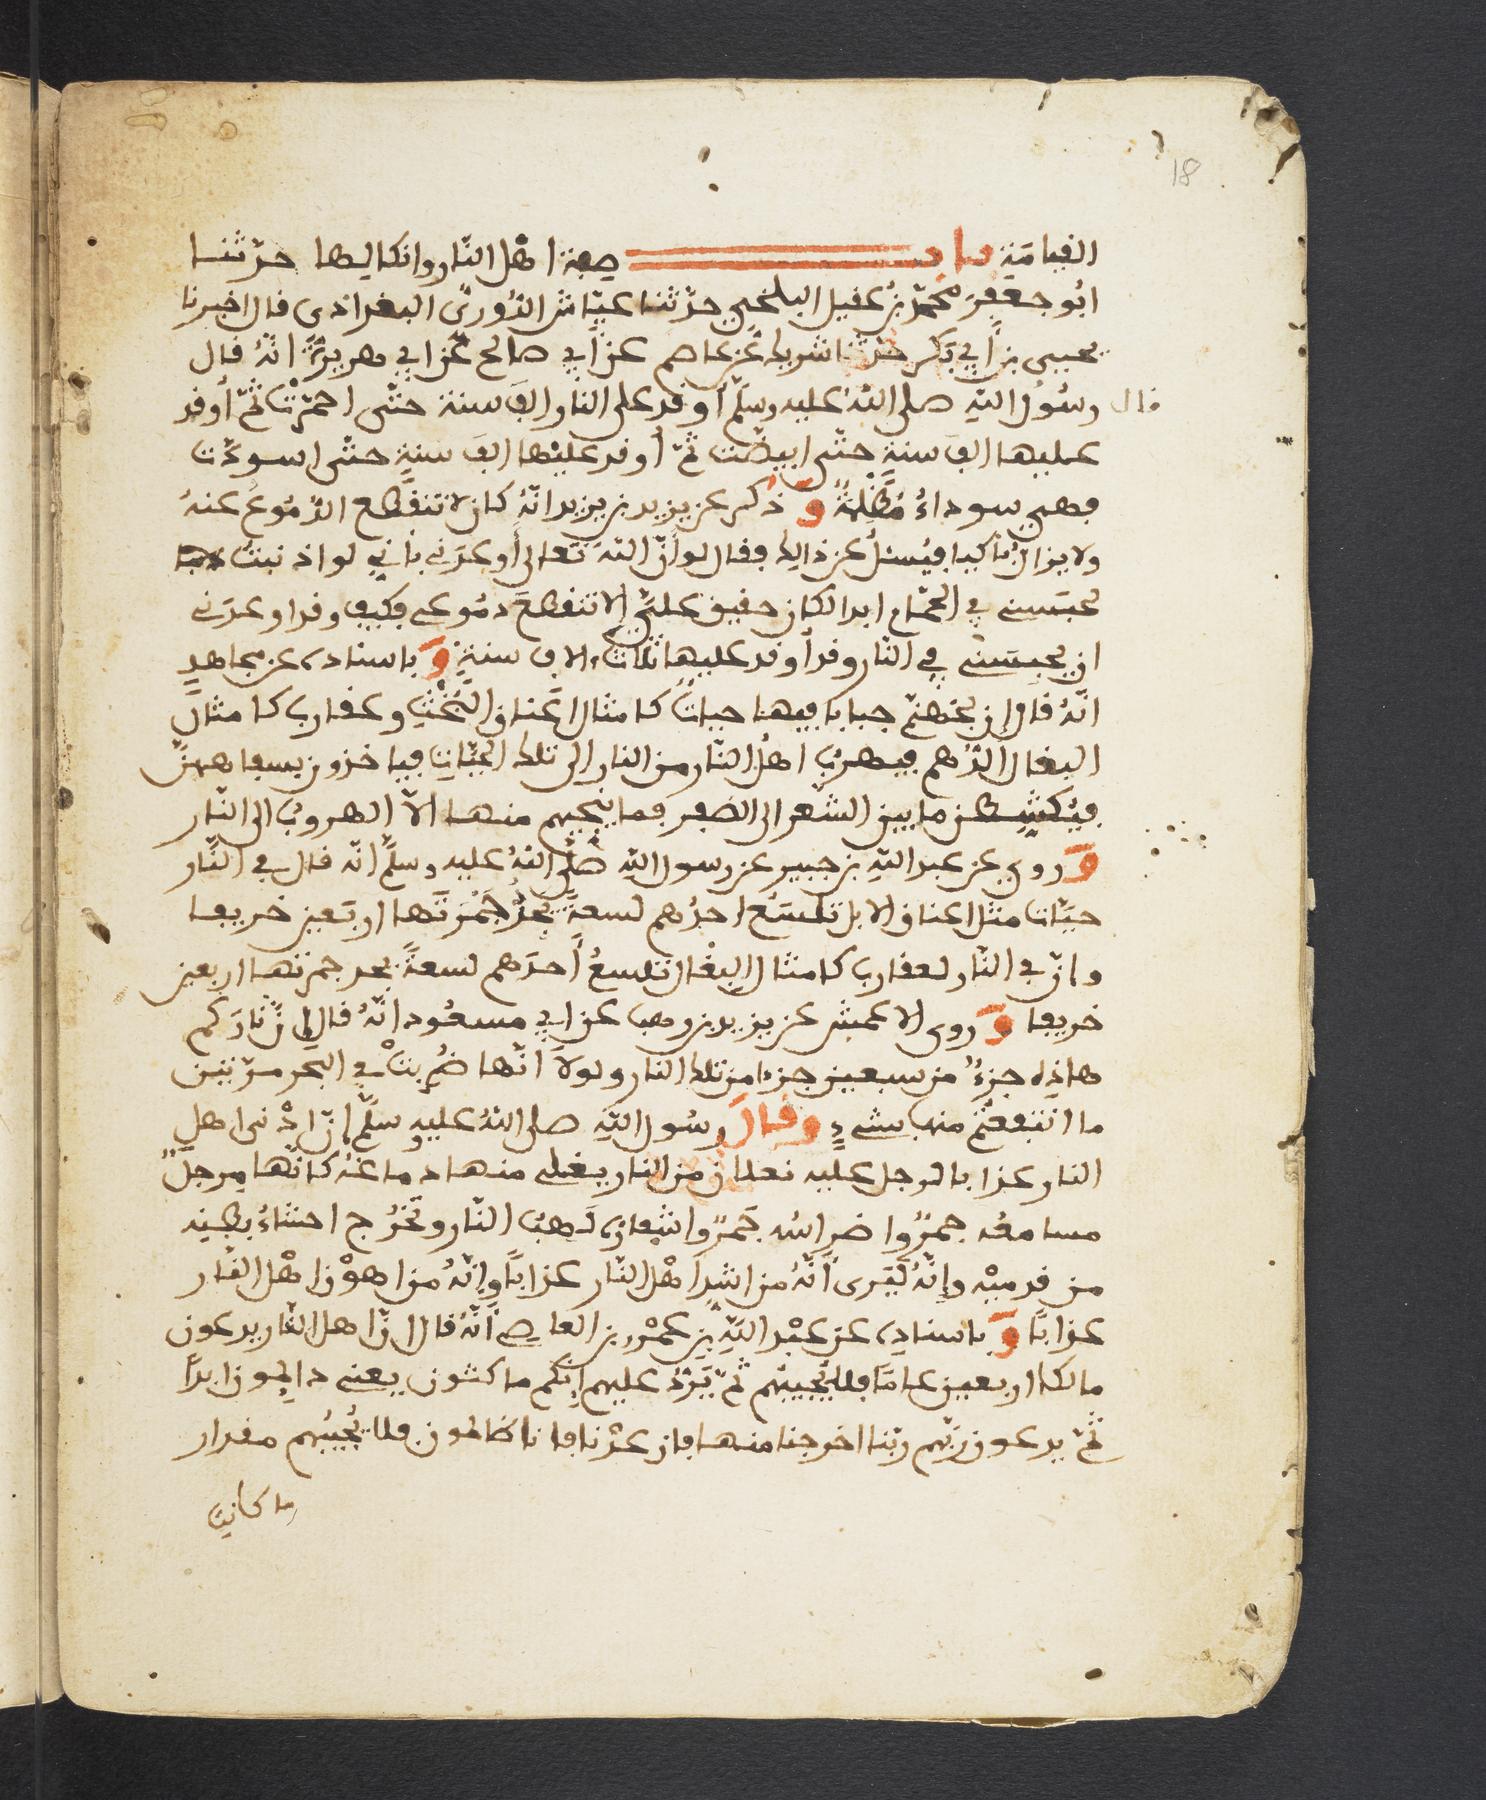 18
القيامة باب صفة اهل النار وانكالها حدثنا
ابو جعفر محمد بن عقيل البلخي حدثنا عباش الدوري البغدادي قال اخبرنا
يحيى بن أبي بكر حدثنا شريك عن عاصم عن أبي صالح عن ابي هريرة انه قال
قال رسول الله صلى الله عليه وسلم أوقد على النار الف سنة حتى احمرت ثم أوقد
عليها الف سنة حتى ابيضت ثم أوقد عليها الف سنة حتى اسودت
فهي سوداء مظلمة و ذكر عن يزيد بن يزيد انه كان لا تنقطع الدموع عنه
ولا يزال باكيا فيسئل عن ذالك فقال لو أن الله تعالى أوعدني بأني لو اذنبت
يحبسني في الحمام ابدا لكان حقيق علي الا تنقطع دموعي فكيف وقد اوعدني
ان يحبسني في النار وقد أوقد عليها ثلاث ءالاف سنة و باسناده عن مجاهد
انه قال إن لجهنم جبابا فيها حيات كامثال اعناق البخت وعقارب كامثال
البغال الدهم فيهرب اهل النار من النار إلى تلك الحيات فياخذون بشفاههن
فيكشطن ما بين الشعر الى الظفر فما ينجيهم منها الا الهروب الى النار
و روي عن عبد الله بن جبير عن رسول الله صلى الله عليه وسلم انه قال في النار
حيات مثل اعناق الابل تلسع احدهم لسعة يجد حمرتها اربعين خريفا
وان في النار لعقارب كامثال البغال تلسع أحدهم لسعة يجد حمرتها اربعين
خريفا و روى الاعمش عن يزيد بن وهب عن ابي مسعود انه قال إن نارکم
هاذه جزء من سبعين جزءا من تلك النار ولولا انها ضربت في البحر مرتين
ما انتفعتم منها بشيء وقال رسول الله صلى الله عليه وسلم إن إدنى اهل
النار عذابا لرجل عليه نعلان من النار يغلي منها دماغه كانها مرجل
مسامعه جمر واضراسه جمر واشفاره لهب النار وتخرج احشاء بطنه
من قدميه وإنه ليرى أنه من اشد اهل النار عذابا وإنه من اهون اهل النار
عذابا و باسناده عن عبد الله بن عمرو بن العاصي أنه قال ان اهل النار يدعون
مالكا اربعين عاما فلا يجيبهم ثم يرد عليهم إنكم ماكثون يعني دايمون ابدا
ثم يدعون ربهم ربنا اخرجنا منها فان عدنا فانا ظالمون فلا يجيبهم مقدار
ما كانت